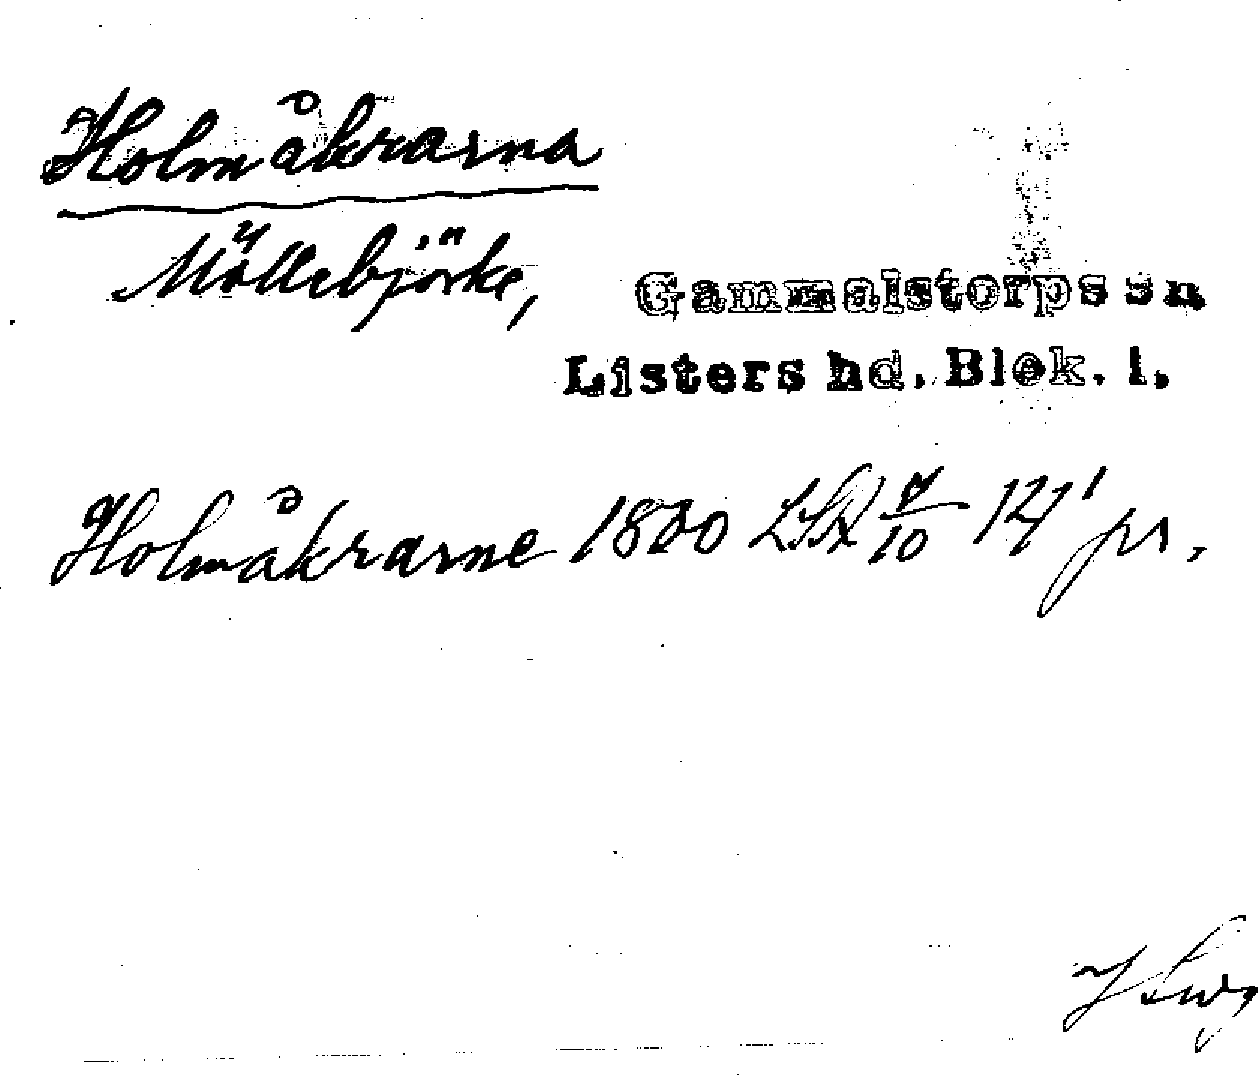 Holmåkrarna
Möllebjörke,
Gammalstorps sn
Listers hd. Blek. l.
Holmåkrarne 1820 LSA 7/10 14' pr.